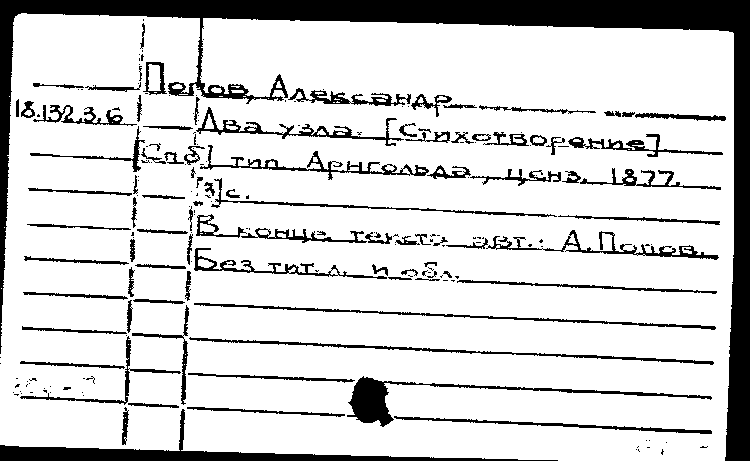 Попов, Александр
18.132.3.6
Два узла. [Стихотворение]
[Спб] тип. Арнгольда, ценз. 1877.
[3] с.
В конце текста авт.: А. Попов.
Без тит. л. и обл.